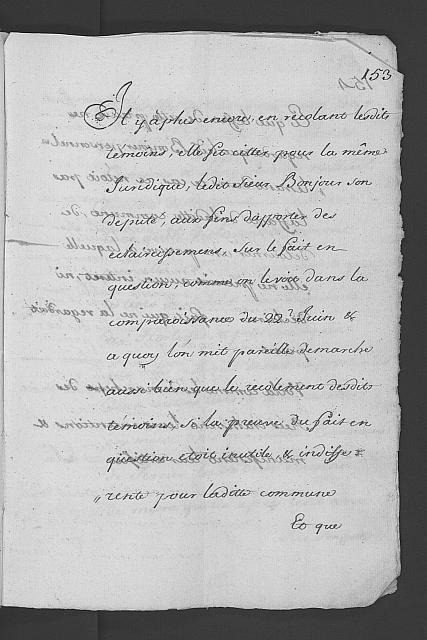 153
Il y a plus encore, en recolant lesdits
temoins, elle fit citter pour la même
Juridique, ledit sieur Bonjour son
deputé, aux fins d'apporter des
eclaircissemens sur le fait en
question, comme on le voit dans la
comparoissance du 22.e Juin &
a quoy l'on mit pareille demarche
aussi bien que le recolement desdits
témoins, si la preuve du fait en
question etoit inutile, & indiffe=
"rente pour laditte commune
Et que